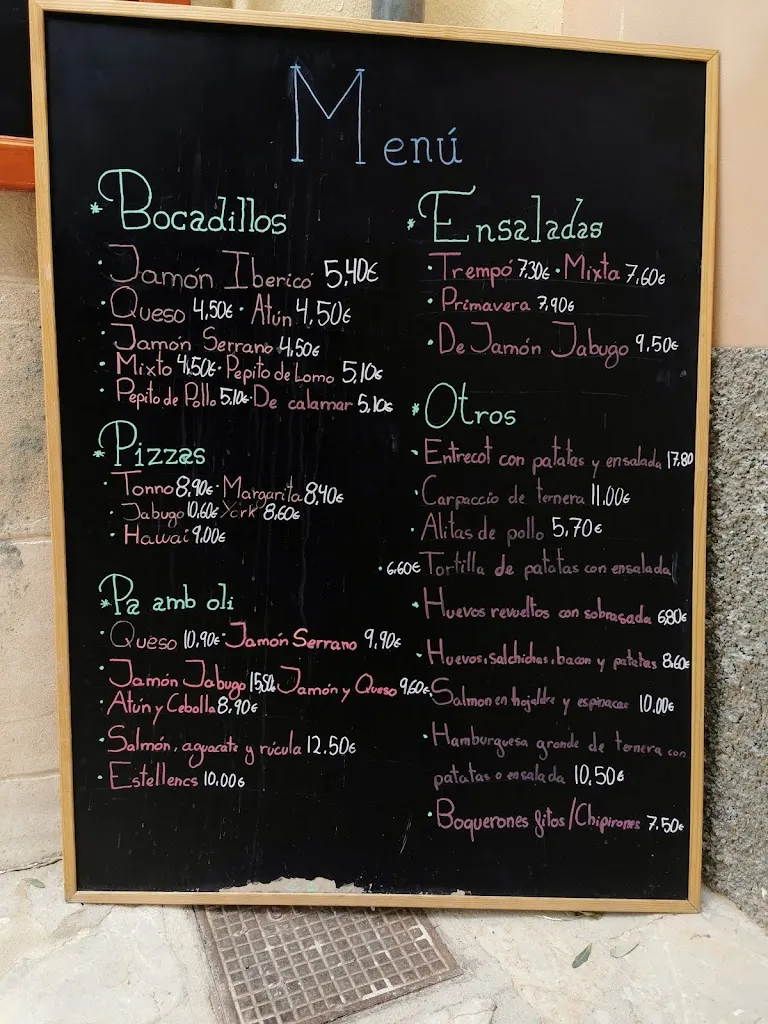 Menú
*Bocadillos
· Jamón Iberico 5,40€
· Queso 4,50€ · Atún 4,50€
· Jamón Serrano 4,50€
· Mixto 4,50€ · Pepito de Lomo 5,10€
· Pepito de Pollo 5,10€ · De calamar 5,10€
*Pizzas
· Tonno 8,90€ · Margarita 8,40€
· Jabugo 10,60€ York 8,60€
· Hawai 9,00€
*Pa amb oli
· Queso 10,90€ · Jamón Serrano 9,90€
· Jamón Jabugo Jamón y Queso 9,60€
· Atún y Cebolla 8,90€
· Salmón, aguacate y rúcula 12.50€
· Estellencs 10,00€
*Ensaladas
· Trempó 7,30€ · Mixta 7,60€
· Primavera 7,90€
· De Jamón Jabugo 9,50€
*Otros
· Entrecot con patatas y ensalada 17.80
· Carpaccio de ternera 11,00€
· Alitas de pollo 5,70€
· 6,60€ Tortilla de patatas con ensalada
· Huevos revueltos con sobrasada 6,80€
· Huevos, salchichas, bacon y patatas 8,60€
· Salmon en hojaldre y espinacas 10,00€
· Hamburguesa grande de ternera con
patatas o ensalada 10,50€
· Boquerones fitos/Chipirones 7.50€